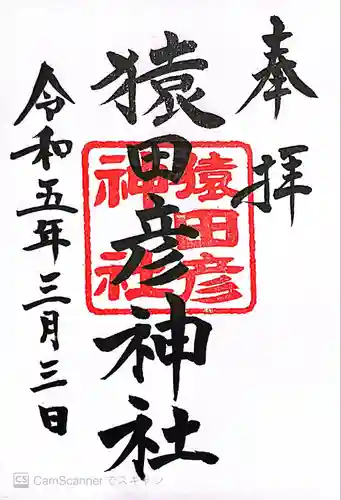 奉拝
猿田彦神社
猿田彦
神社
令和五年三月三日
CS CamScanner でスキャン